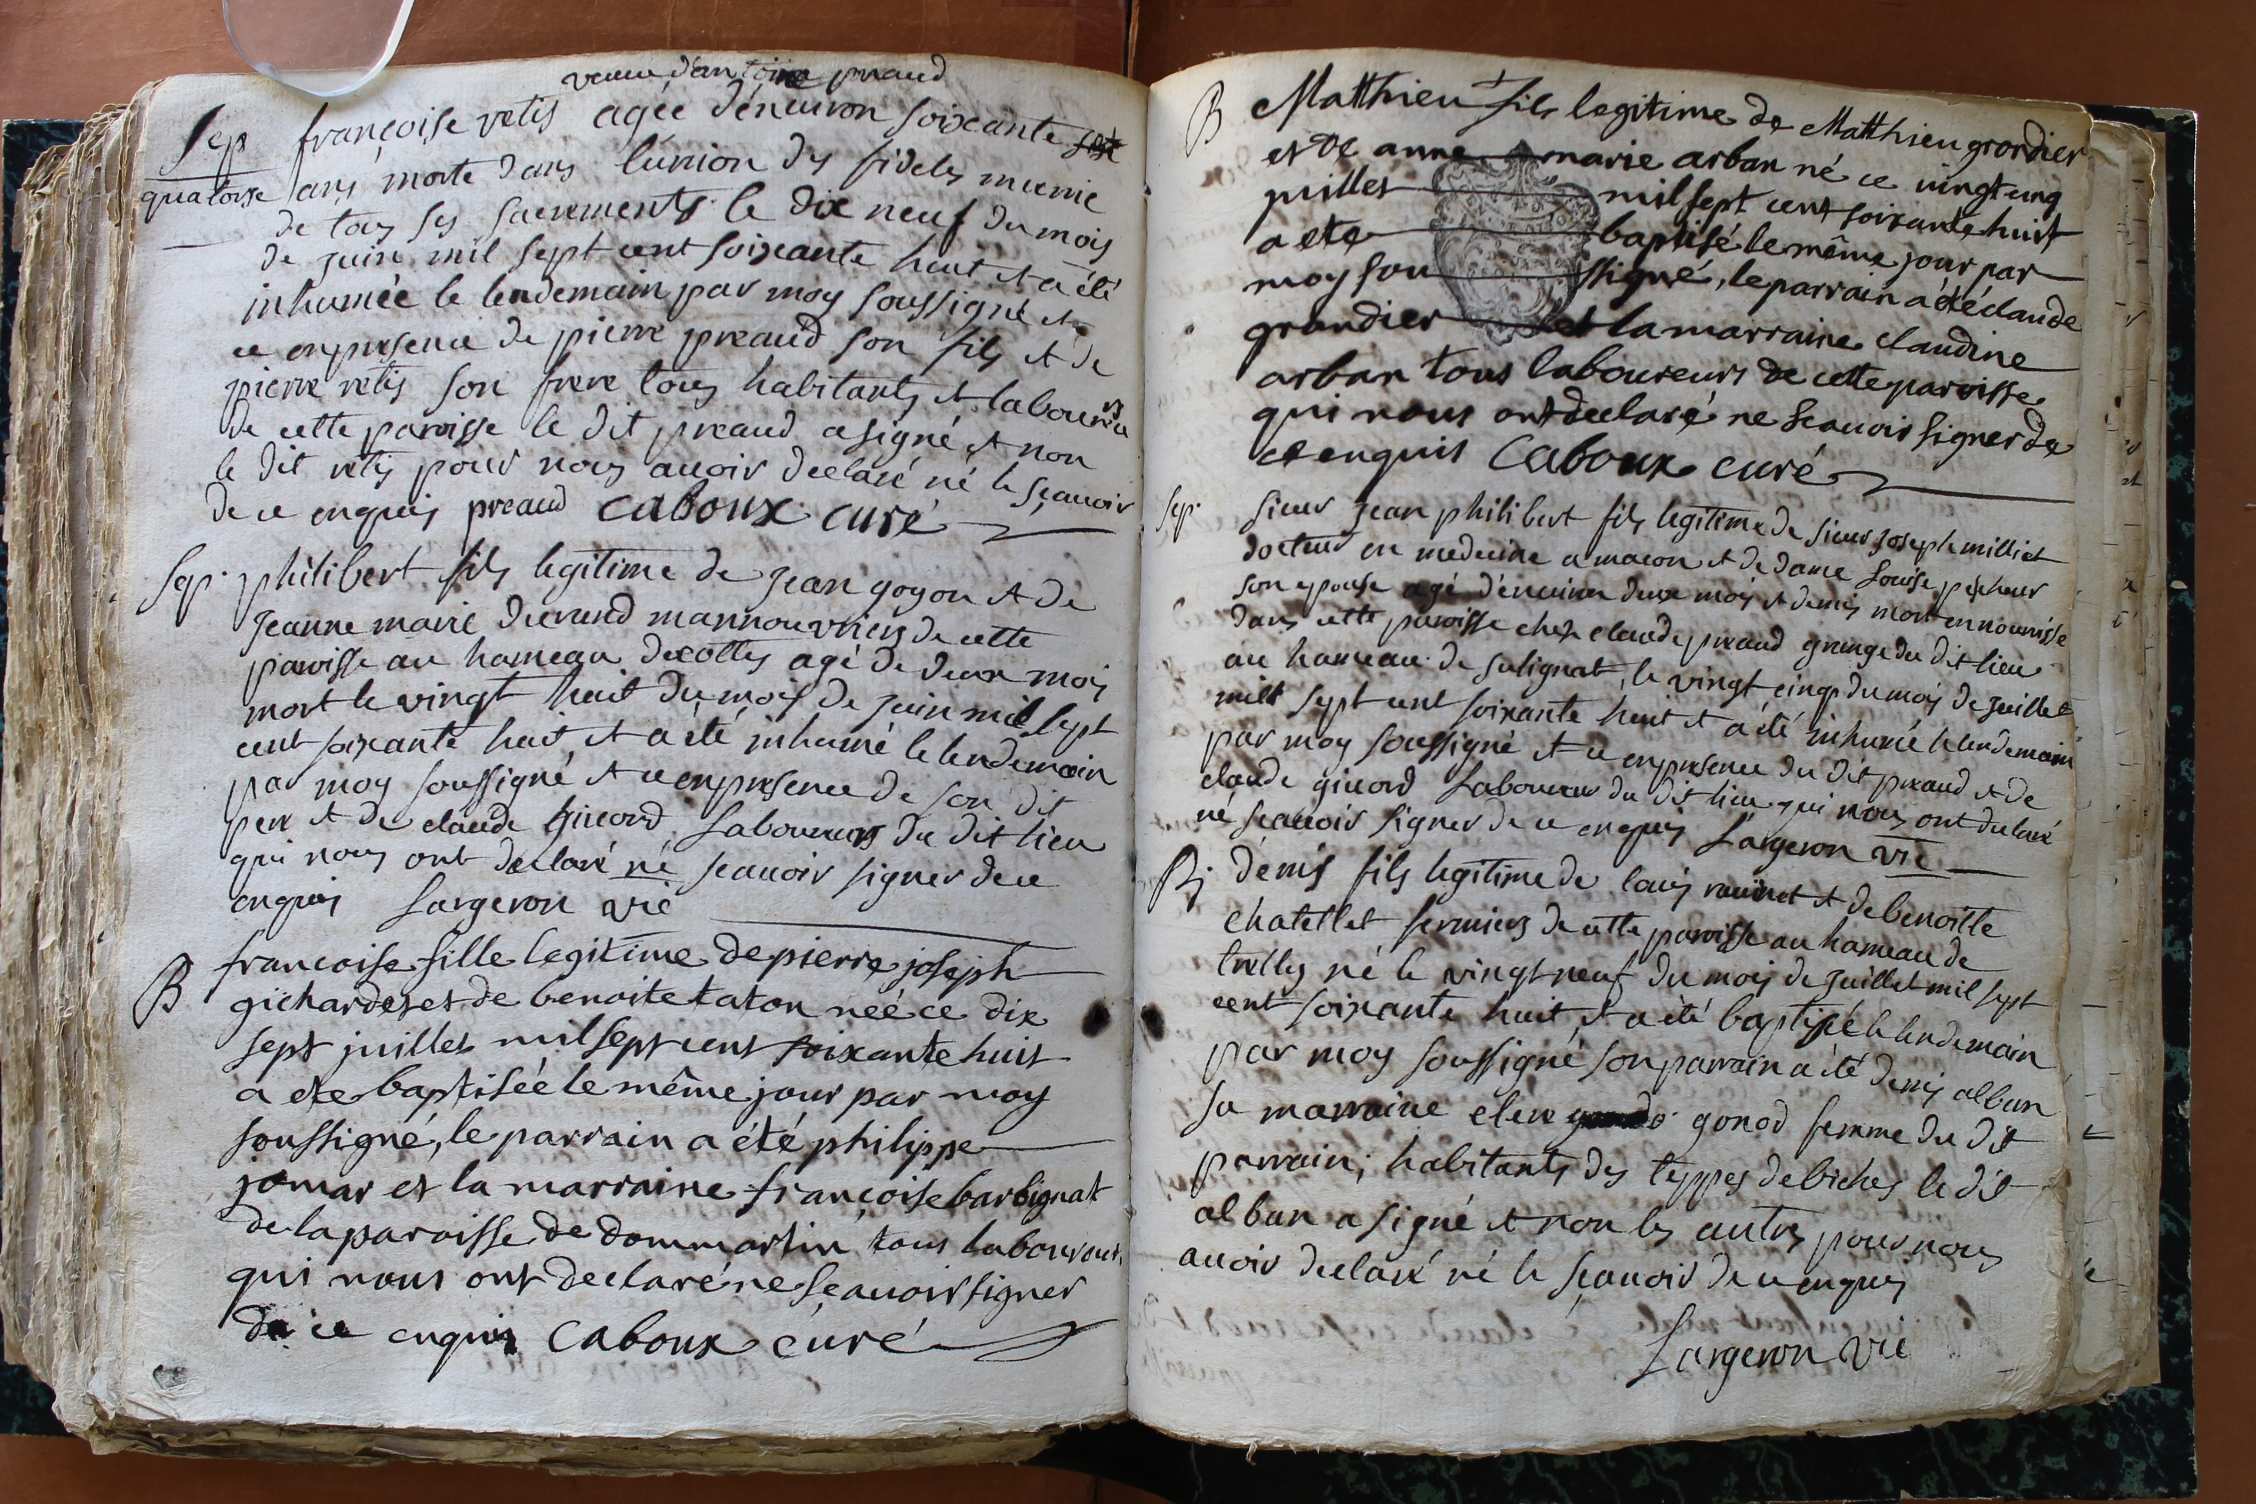 veuve d'antoine preaud
Sep françoise vetis agée d'environ soixante
quatorse ans morte dans l'union des fideles munie
de tous ses sacrements le dix neuf du mois
de juin mil sept cent soixante huit et a été
inhumée le lendemain par moy soussigné et
ce en presence de pierre preaud son fils et de
pierre vetis son frere tous habitants et laboureurs
de cette paroisse le dit preaud a signé et non
le dit vetis pour nous avoir declaré né le sçavoir
de ce enquis preaud caboux curé
Sep. philibert fils legitime de jean goyon et de
jeanne marie ducrund mannouvriers de cette
paroisse au hameau decottes agé de deux mois
mort le vingt huit du mois de juin mil sept
cent soixante huit et a été inhumé le lendemain
par moy soussigné et ce en presence de son dit
pere et de claude giuord laboureurs du dit lieu
qui nous ont declaré né scauoir signer de ce
enquis Largeron vié
B francoise fille legitime de pierre joseph
gichardet et de benoite taton née ce dix
sept juillet mil sept cent soixante huit
a ete baptisée le même jour par moy
soussigné, le parrain a été philippe
jomar et la marraine françoise barbignat
de la paroisse de dommartin tous laboureurs
qui nous ont declaré ne sçauoir signer
de ce enquis caboux curé
B Matthieu fils legitime de Matthieu grondier
et de anne marie arban né ce vingt cinq
juillet mil sept cent soixante huit
a ete baptisé le même jour par
moy soussigné, le parrain a été claude
grandier et la marraine claudine
arban tous laboureurs de cette paroisse
qui nous ont declaré ne scauoir signer de
ce enquis Caboux curé
Sep. sieur jean philibert fils legitime de sieur joseph milliet
docteur en medecine a macon et de dame Louise pecheur
son epouse agé d'enuiron deux mois et demis mort en nourrisse
dans cette paroisse chez claude preaud granger du dit lieu
au hameau de sulignat, le vingt cinq du mois de juillet
mill sept cent soixante huit et a été inhumé le lendemain
par moy soussigné et ce en presence du dit preaud et de
claude giuord Laboureur du dit lieu qui nous ont declaré
né scauoir signer de ce enquis Largeron vié
B. dénis fils legitime de louis rauinet et de benoitte
chatellet fermiers de cette paroisse au hameau de
trelles né le vingt neuf du mois de juillet mil sept
cent soixante huit et a été baptissé le lendemain
par moy soussigné son parrain a été denis alban
sa marraine elene gonod femme du dit
parrain, habitants des teppes de biches le dit
alban a signé et non les autres pour nous
auoir declaré né le sçauoir de ce enquis
Largeron vié